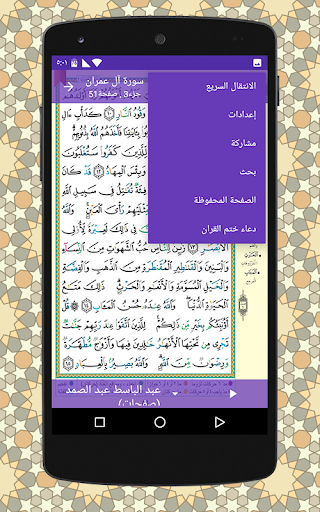 ٥:٠١
سورة آل عمران
جزء3, صفحة51
الانتقال السريع
إعدادات
مشاركة
بحث
الصفحة المحفوظة
دعاء ختم القران
وَقُودُ النَّارِ ١٠ كَدَأْبِ ءَالِ
كَذَّبُوا بِـَٔايَـٰتِنَا فَأَخَذَهُمُ اللَّهُ بِذُنُوبِهِمْ
قُل لِّلَّذِينَ كَفَرُوا سَتُغْلَبُونَ
وَبِئْسَ الْمِهَادُ ١٢ قَدْ كَانَ
فِي سَبِيلِ اللَّهِ
مِّثْلَيْهِمْ رَأْيَ الْعَيْنِ
إِنَّ فِي ذَٰلِكَ لَعِبْرَةً لِّأُولِي
الْأَبْصَـٰرِ ١٣ زُيِّنَ لِلنَّاسِ حُبُّ الشَّهَوَٰتِ مِنَ النِّسَاءِ
وَالْبَنِينَ وَالْقَنَـٰطِيرِ الْمُقَنطَرَةِ مِنَ الذَّهَبِ وَالْفِضَّةِ
وَالْخَيْلِ الْمُسَوَّمَةِ وَالْأَنْعَـٰمِ وَالْحَرْثِ ذَٰلِكَ مَتَـٰعُ
الْحَيَوٰةِ الدُّنْيَا وَاللَّهُ عِندَهُ حُسْنُ الْمَـَٔابِ ١٤ قُلْ
أَؤُنَبِّئُكُم بِخَيْرٍ مِّن ذَٰلِكُمْ لِلَّذِينَ اتَّقَوْا عِندَ رَبِّهِمْ جَنَّـٰتٌ
تَجْرِي مِن تَحْتِهَا الْأَنْهَـٰرُ خَـٰلِدِينَ فِيهَا وَأَزْوَٰجٌ مُّطَهَّرَةٌ
وَرِضْوَٰنٌ مِّنَ اللَّهِ وَاللَّهُ بَصِيرٌ بِالْعِبَادِ ١٥
عبد الباسط عبد الصمد
(صفحات)